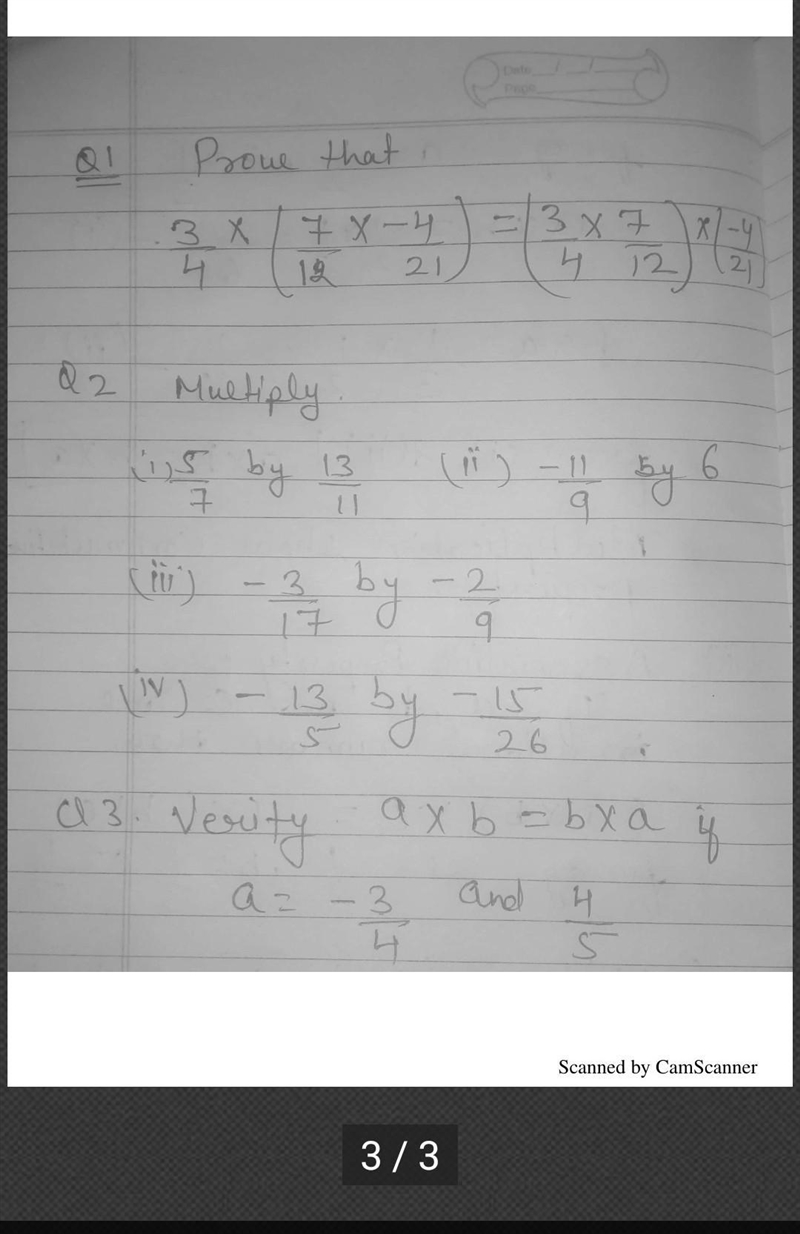 Date / /
Page
Q1 Prove that
3/4 × (7/12 × -4/21) = (3/4 × 7/12) × (-4/21)
Q2 Multiply.
(i) 5/7 by 13/11 (ii) -11/9 by 6
(iii) -3/17 by -2/9
(iv) -13/5 by -15/26
Q3. Verify a × b = b × a if
a = -3/4 and 4/5
Scanned by CamScanner
3 / 3